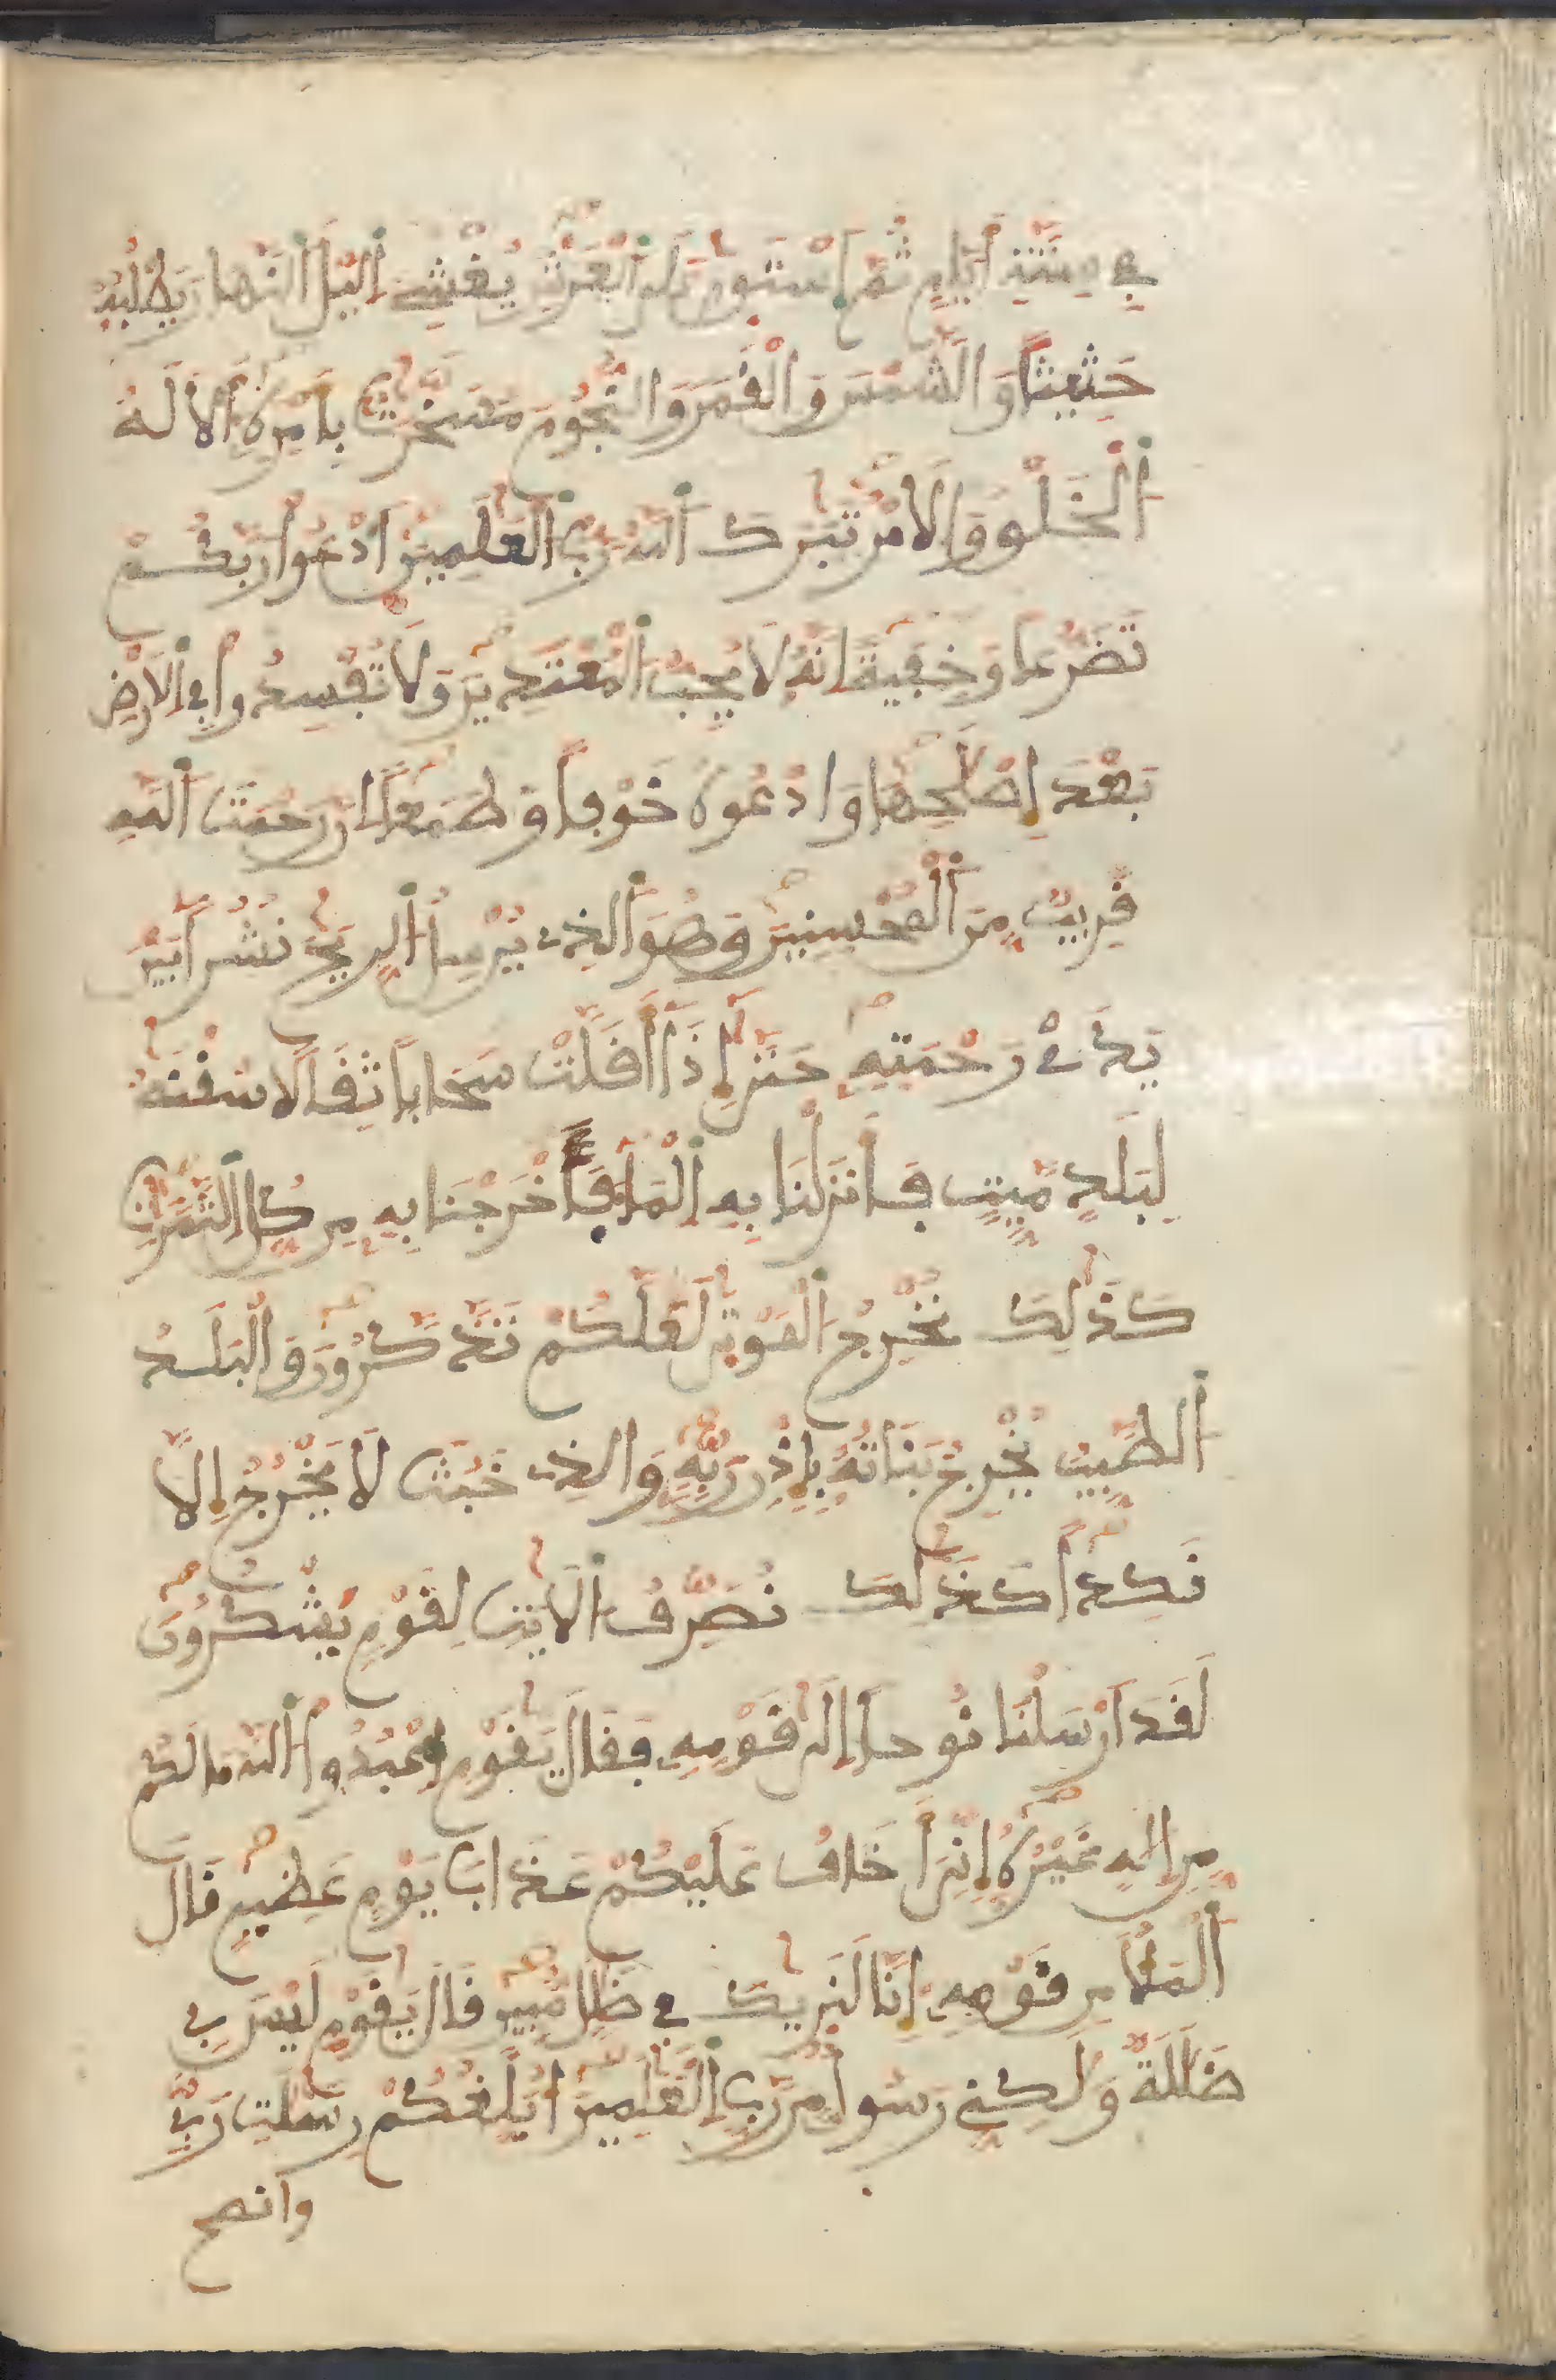 في ستة أيام ثم استوى على العرش يغشي اليل النهار يطلبه
حثيثا والشمس والقمر والنجوم مسخرت بأمره ألا له
الخلق والأمر تبرك الله رب العلمين ادعوا ربكم
تضرعا وخفية إنه لا يحب المعتدين ولا تفسدوا في الأرض
بعد إصلحها وادعوه خوفا وطمعا إن رحمت الله
قريب من المحسنين وهو الذي يرسل الريح نشرا بين
يدي رحمته حتى إذا أقلت سحابا ثقالا سقنه
لبلد ميت فأنزلنا به الماء فأخرجنا به من كل الثمرت
كذلك نخرج الموتى لعلكم تذكرون والبلد
الطيب يخرج نباته بإذن ربه والذي خبث لا يخرج إلا
نكدا كذلك نصرف الأيت لقوم يشكرون
لقد أرسلنا نوحا إلى قومه فقال يقوم اعبدوا الله ما لكم
من إله غيره إني أخاف عليكم عذاب يوم عظيم قال
الملأ من قومه إنا لنريك في ضلل مبين قال يقوم ليس بي
ضللة ولكني رسول من رب العلمين أبلغكم رسلت ربي
وانصح